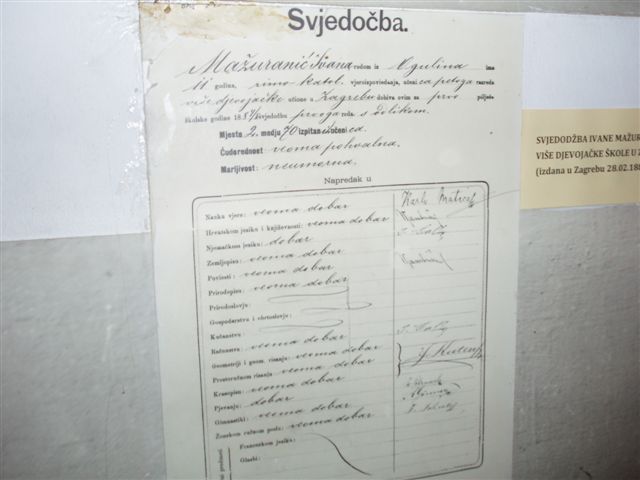 Svjedočba.
Mažuranić Ivana rodom iz Ogulina ima
11 godina, rimo katol. vjeroizpoviedanja, učenica petoga razreda
više djevojačke učione u Zagrebu dobiva ovim za prvo poljeće
školske godine 188 svjedočbu prvoga reda s odlikom.
Mjesto 2. medju 70 izpitan učenica
Ćudorednost veoma pohvalna.
Marljivost: neumorna.
Napredak u
Nauka vjere: veoma dobar
Hrvatskom jeziku i književnosti: veoma dobar
Njemačkom jeziku: dobar
Zemljopisu: veoma dobar
Poviesti: veoma dobar
Prirodopisu: veoma dobar
Prirodoslovju:
Gospodarstvu i obrtoslovju:
Kućanstvu:
Računstvu: veoma dobar
Geometriji i geom. risanju: veoma dobar
Prostoručnom risanju veoma dobar
Krasopisu: veoma dobar
Pjevanju: dobar
Gimnastiki: veoma dobar
Ženskom ručnom poslu: veoma dobar
Francezkom jeziku:
Glasbi:
SVJEDODŽBA IVANE MAŽUR
VIŠE DJEVOJAČKE ŠKOLE U Z
(izdana u Zagrebu 28.02.188